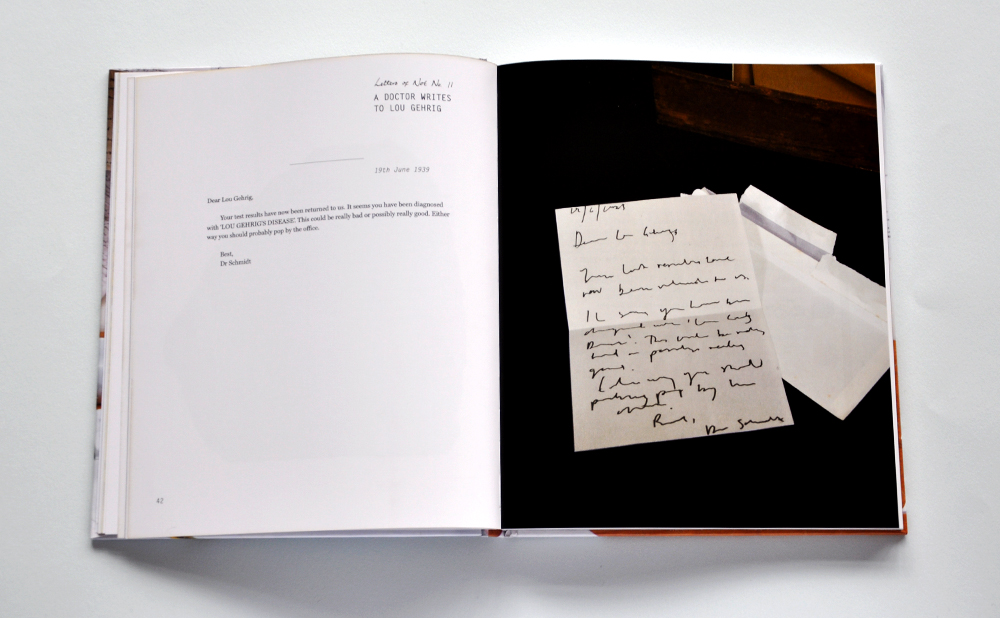 Letters of Not No 11
A DOCTOR WRITES
TO LOU GEHRIG
19th June 1939
Dear Lou Gehrig,
Your test results have now been returned to us. It seems you have been diagnosed
with 'LOU GEHRIG'S DISEASE'. This could be really bad or possibly really good. Either
way you should probably pop by the office.
Best,
Dr Schmidt
42
Dear Lou Gehrig
Your test results have
now been returned to us.
It seems you have been
diagnosed with 'Lou Gehrig's
Disease'. This could be really
bad or possibly really
good.
Either way you should
probably pop by the
office.
Dr Schmidt